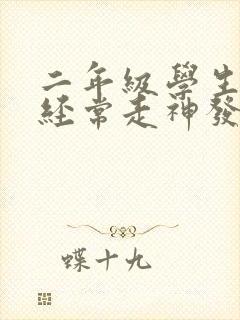 二年級學生
經常走神發
蝶十九